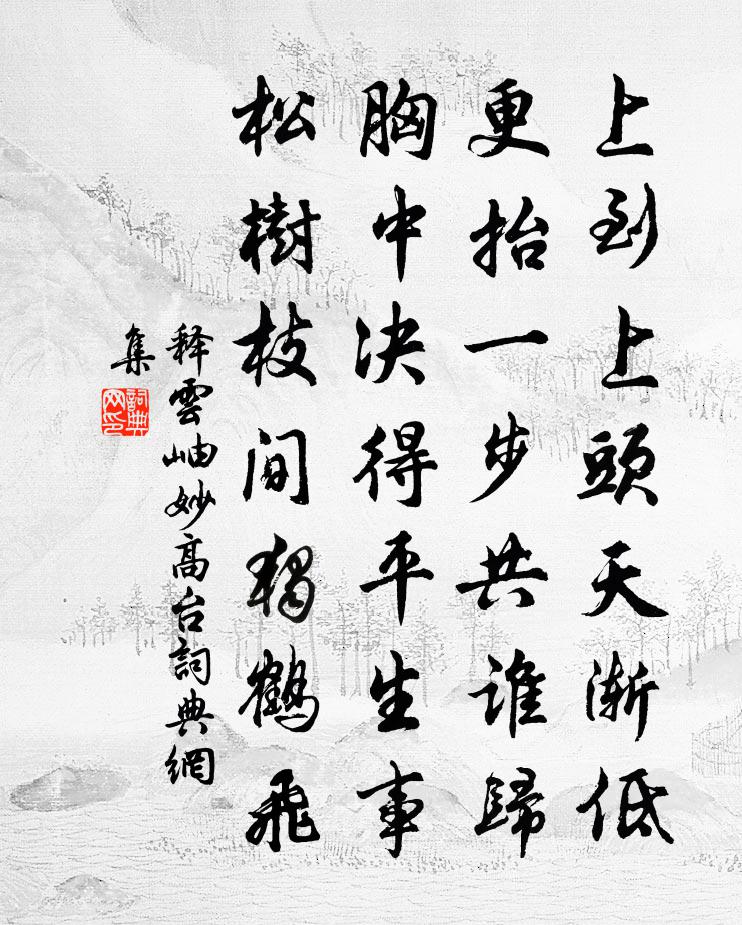 上到上頭天渐低
更抬一步共谁歸
胸中决得平生事
松樹枝间独鶴飛
释雲岫妙高台詞典網
集
詞典
网印